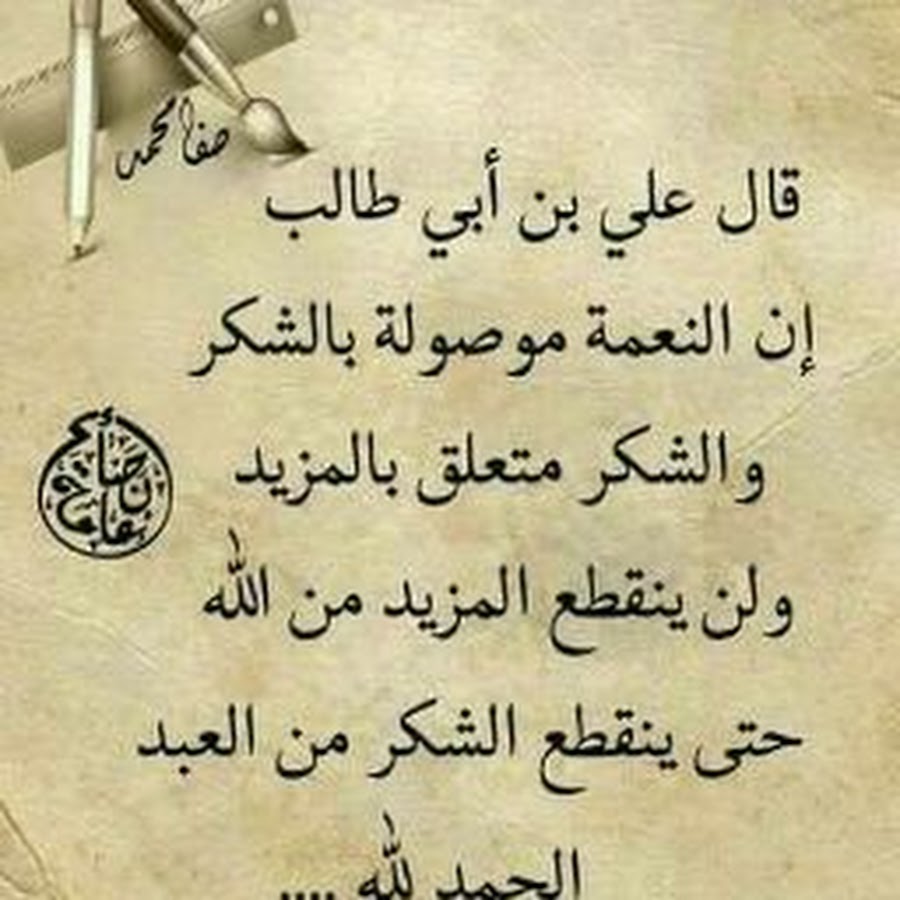 صفا محمد
قال علي بن أبي طالب
إن النعمة موصولة بالشكر
والشكر متعلق بالمزيد
ولن ينقطع المزيد من الله
حتى ينقطع الشكر من العبد
الحمد لله ....